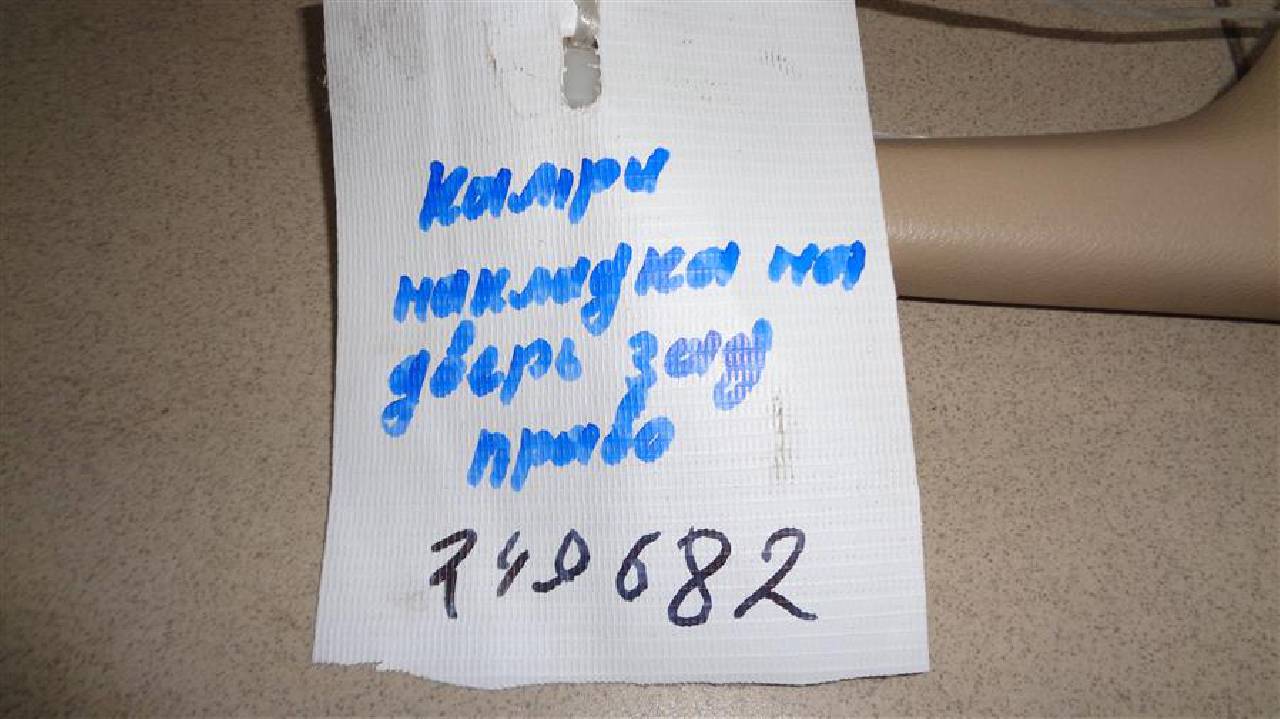 Камри
накладка на
дверь зад
право
749682